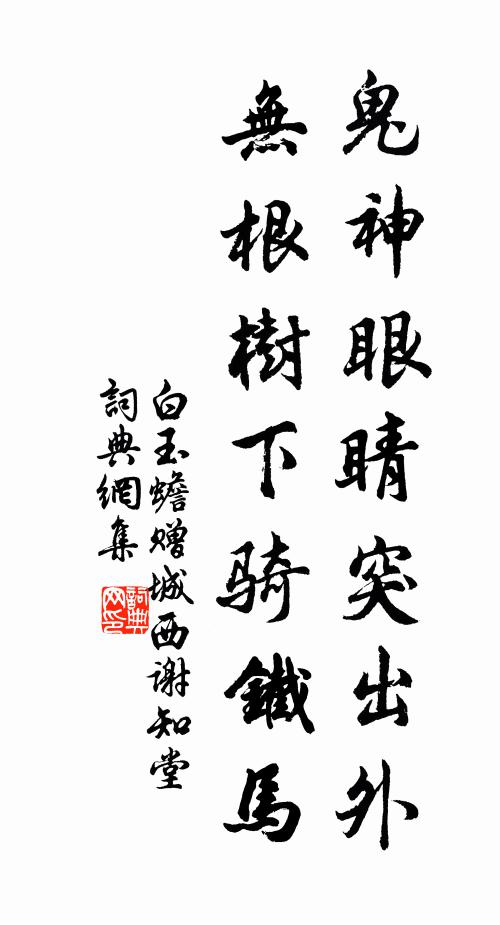 鬼神眼睛突出外
無根樹下騎鐵馬
白玉蟾赠城西谢知堂
詞典網集
詞典网印